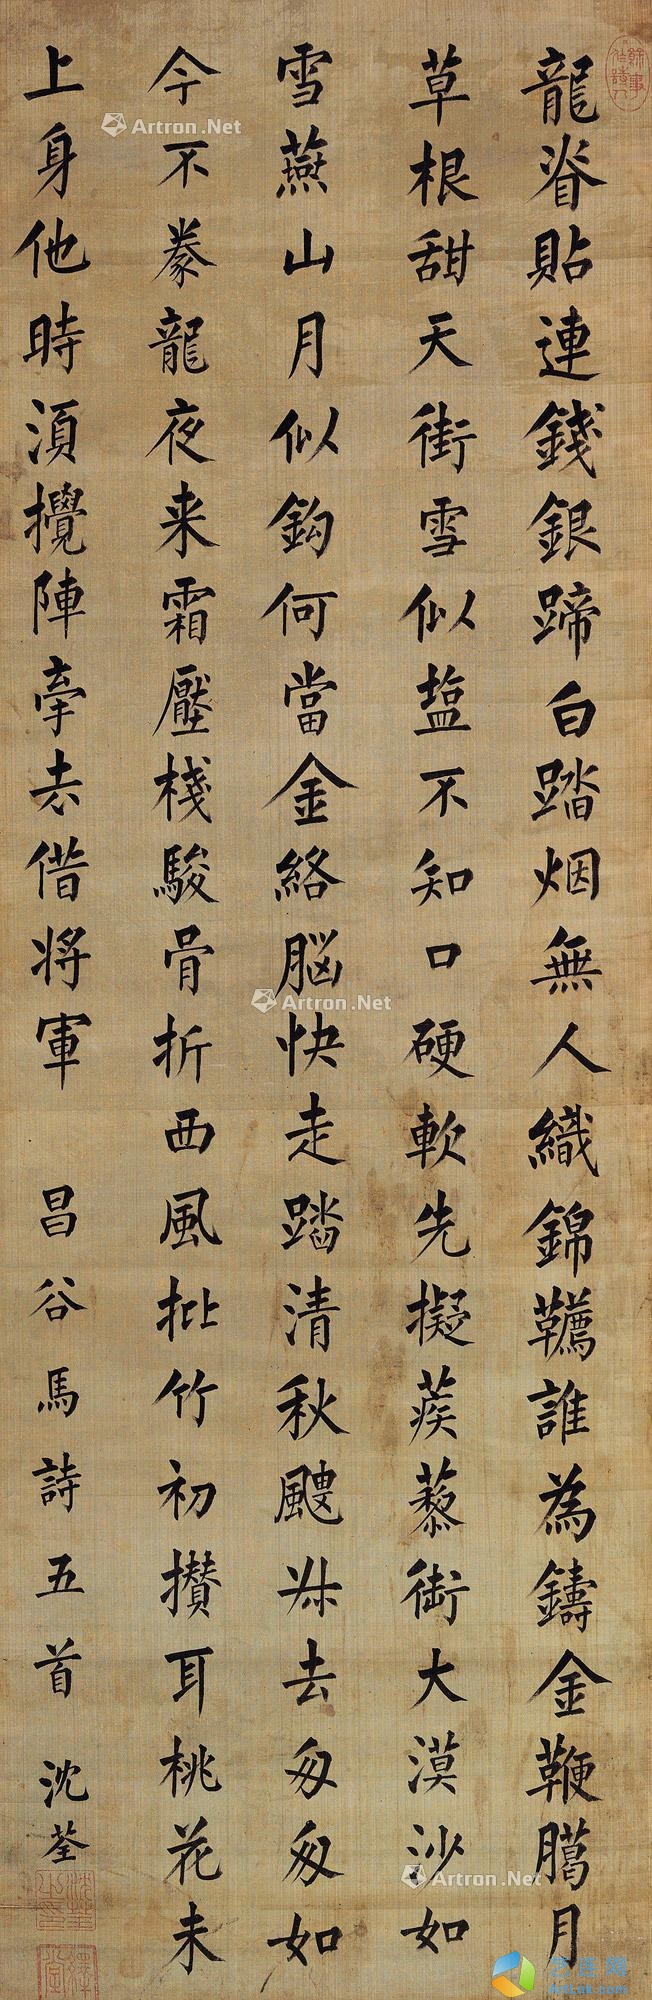 龍脊貼連錢銀蹄白踏烟無人織錦韉誰為鑄金鞭臈月
草根甜天街雪似塩不知口硬軟先擬蒺藜銜大漠沙如
雪燕山月似鈎何當金絡腦快走踏清秋飂叔去匆匆如
今不豢龍夜来霜壓棧駿骨折西風批竹初攢耳桃花未
上身他時須攪陣牽去借将軍 昌谷馬詩五首 沈荃
Artron.Net
Artron.Net
Artron.Net